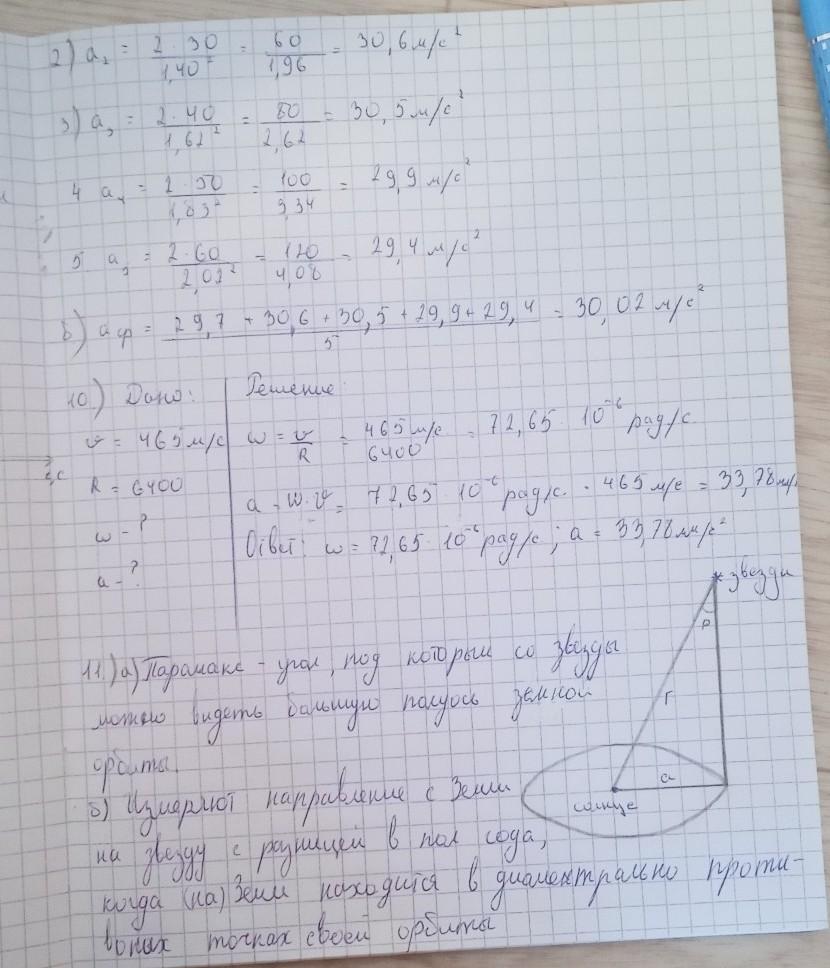 2) a₂ = 2·30 / 1,40² = 60 / 1,96 = 30,6 м/с²
3) a₃ = 2·40 / 1,62² = 80 / 2,62 = 30,5 м/с²
4 a₄ = 2·50 / 1,83² = 100 / 3,34 = 29,9 м/с²
5 a₅ = 2·60 / 2,02² = 120 / 4,08 = 29,4 м/с²
6) aср = 29,7 + 30,6 + 30,5 + 29,9 + 29,4 / 5 = 30,02 м/с²
10.) Дано: Решение:
v = 465 м/с ω = v / R = 465 м/с / 6400 = 72,65 · 10⁻⁶ рад/с
R = 6400 a = ω·v = 72,65 · 10⁻⁶ рад/с · 465 м/с = 33,78 м/
ω - ? Ответ: ω = 72,65 · 10⁻⁶ рад/с; a = 33,78 м/с²
a - ?
звезда
p
r
a
солнце
11.) а) Паралакс - угол, под которым со звезды
можно видеть большую полуось земной
орбиты.
б) Измеряют направление с Земли
на звезду с разницей в пол года,
когда (на) Земли находится в диаментрально проти-
воних точках своей орбиты